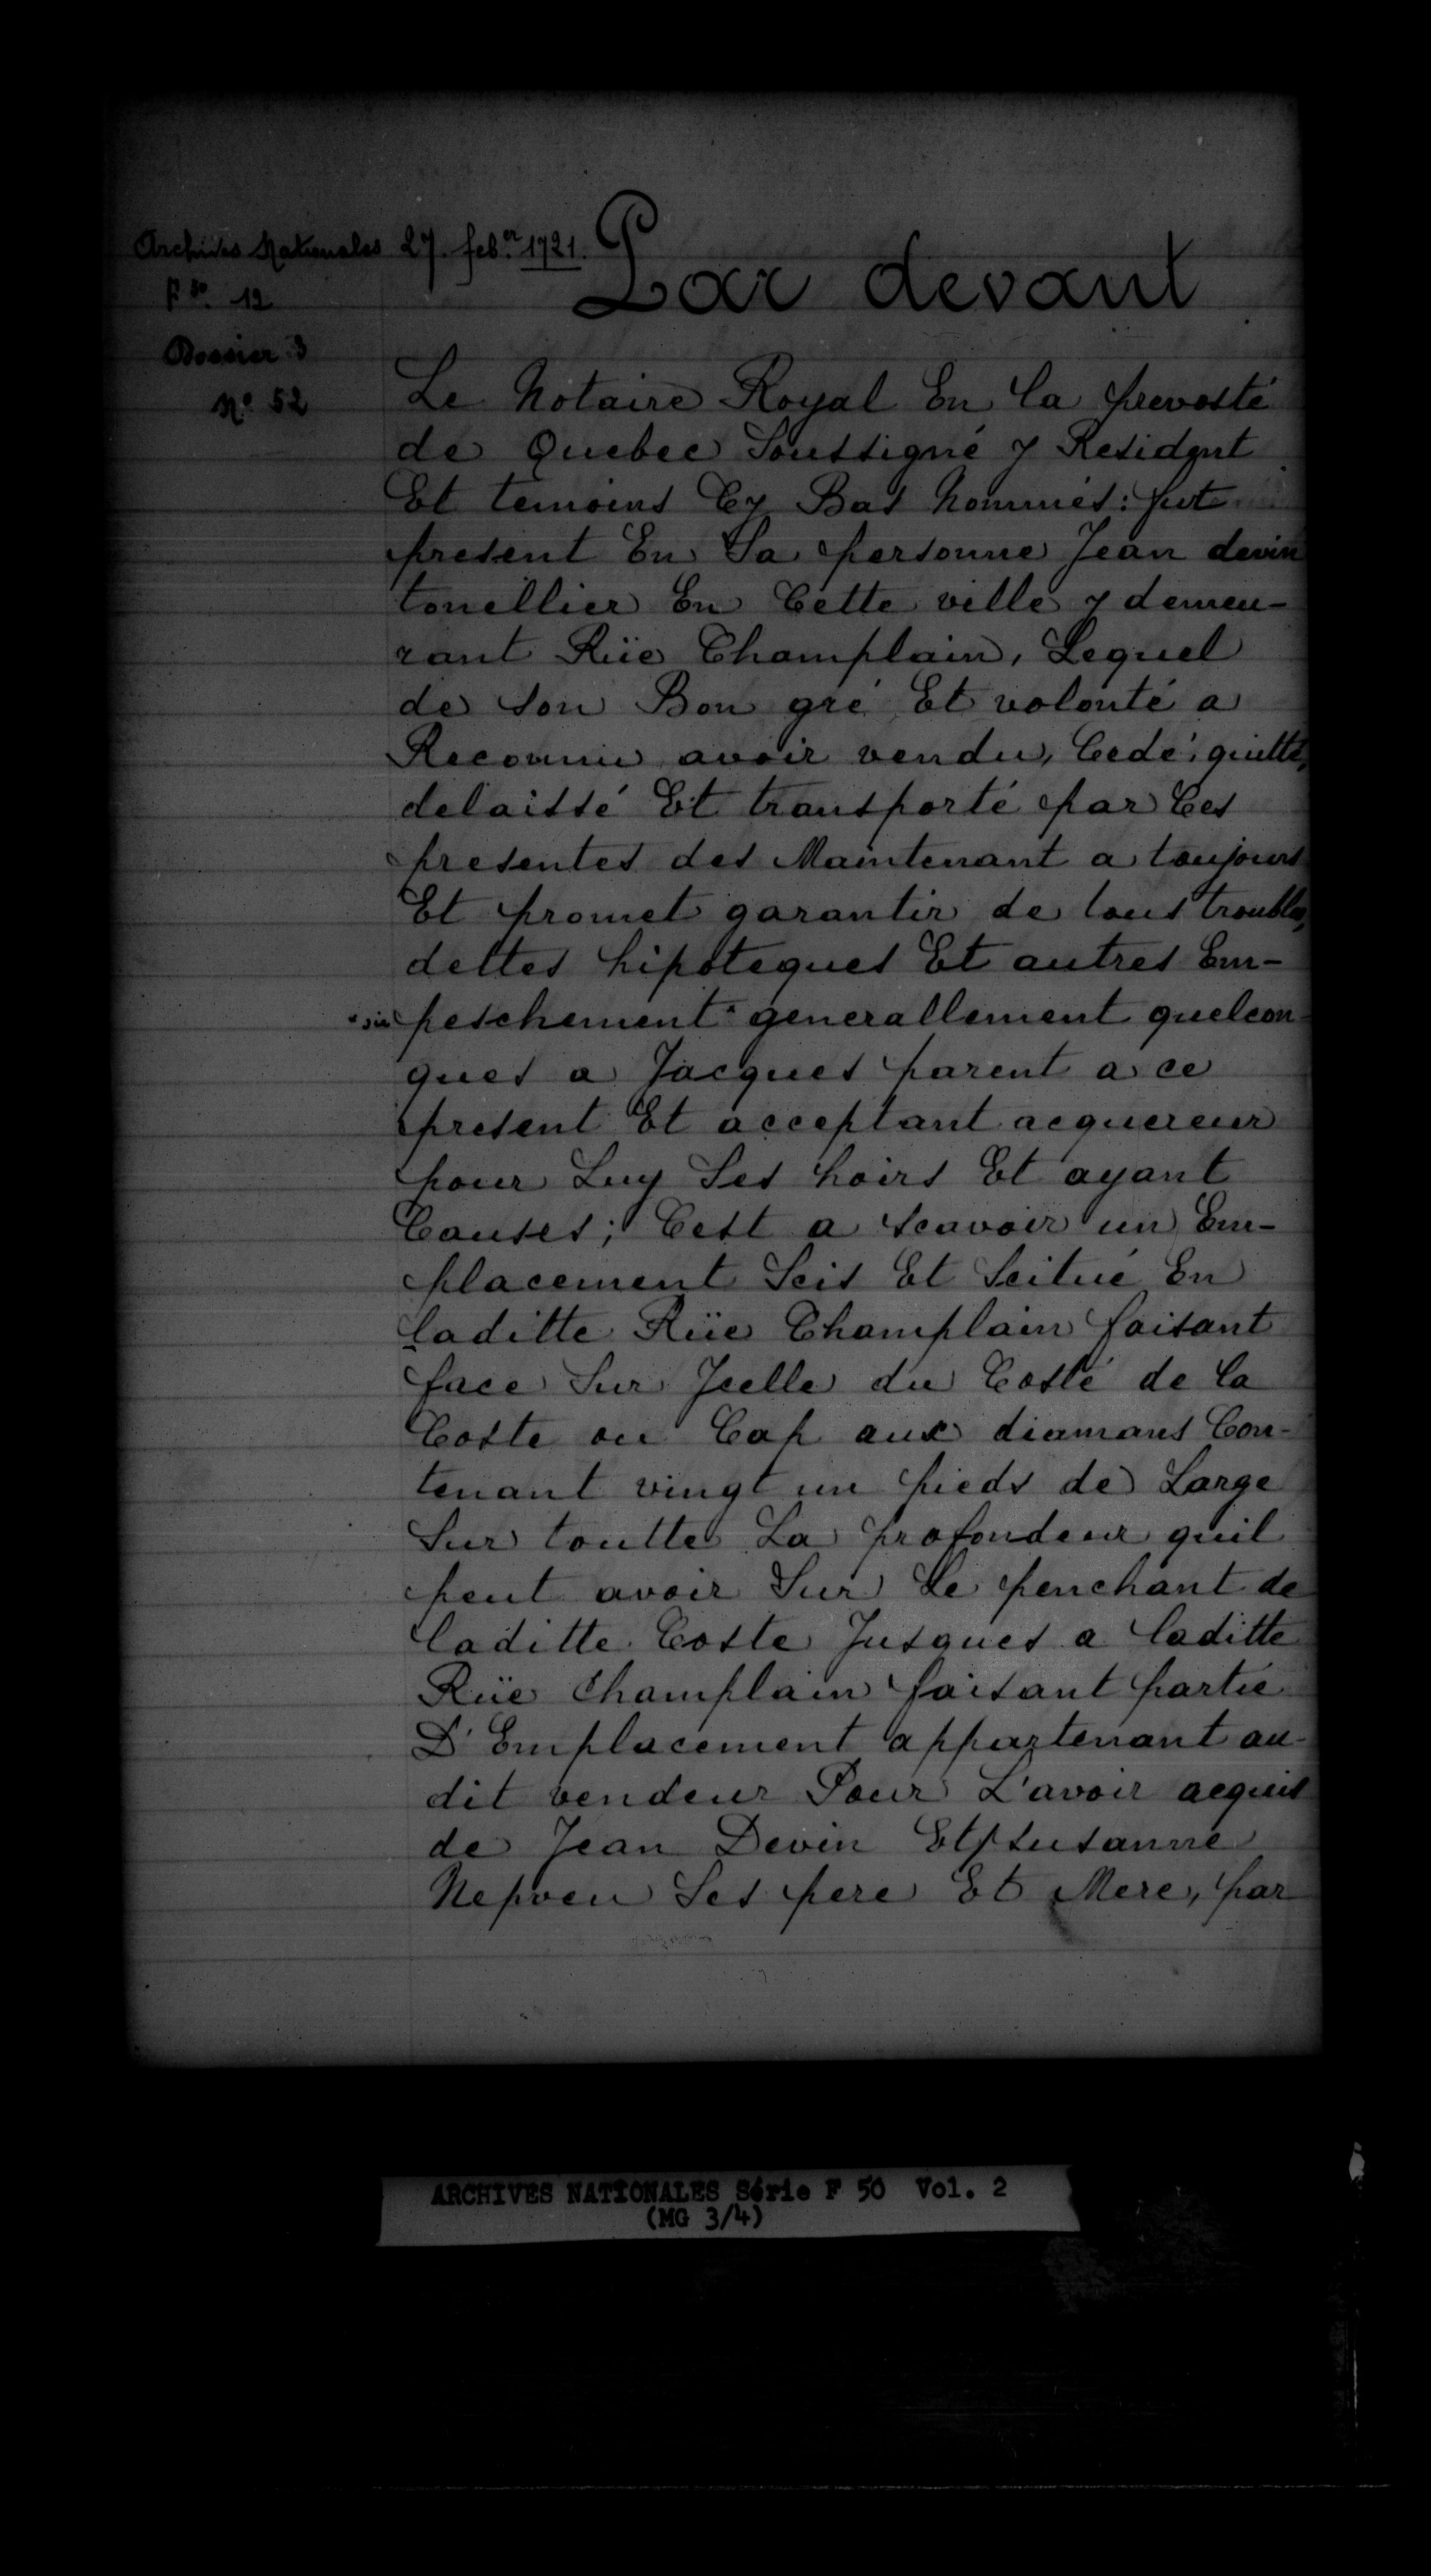 Archives Nationales
F 50. 12
Dossier 3
N° 52
27. feb.er 1721.
Par devant
Le Notaire Royal En la prevosté
de Quebec Soussigné y Resident
Et temoins Cy Bas Nommés: fut
present En Sa personne Jean devin
tonellier En Cette ville y demeu-
rant Rüe Champlain, Lequel
de son Bon gré Et volonté a
Reconnu avoir vendu, Cedé, quitté,
delaissé Et transporté par Ces
presentes des Maintenant a toujours
Et promet garantir de tous troubles,
dettes hipoteques Et autres Em-
* sic peschement * generallement quelcon-
ques a Jacques parent a ce
present Et acceptant acquereur
pour Luy Ses hoirs Et ayant
Causes; Cest a scavoir un Em-
placement Scis Et Scitué En
laditte Rüe Champlain faisant
face Sur Jcelle du Costé de la
Coste ou Cap aux diamans Con-
tenant vingt un pieds de Large
Sur toutte La profondeur quil
peut avoir Sur Le penchant de
laditte Coste Jusques a laditte
Rüe Champlain faisant partie
D'Emplacement appartenant au-
dit vendeur Pour L'avoir acquis
de Jean Devin Et susanne
Nepveu Ses pere Et Mere, par
ARCHIVES NATIONALES Série F 50 Vol. 2
(MG 3/4)